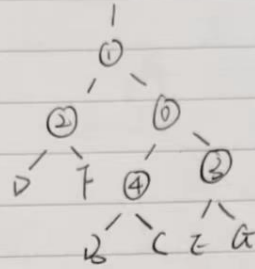 ①
② ⓪
D F ④ ③
B C E G